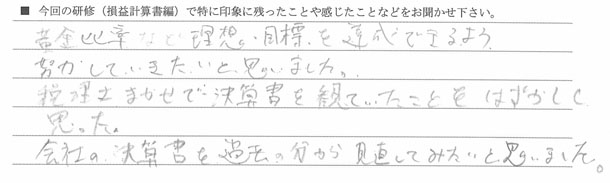 ■ 今回の研修（損益計算書編）で特に印象に残ったことや感じたことなどをお聞かせ下さい。
黄金比率など理想の目標を達成できるよう
努力していきたいと思いました。
税理士まかせで決算書を観ていたことをはずかしく
思った。
会社の決算書を過去の分から見直してみたいと思いました。